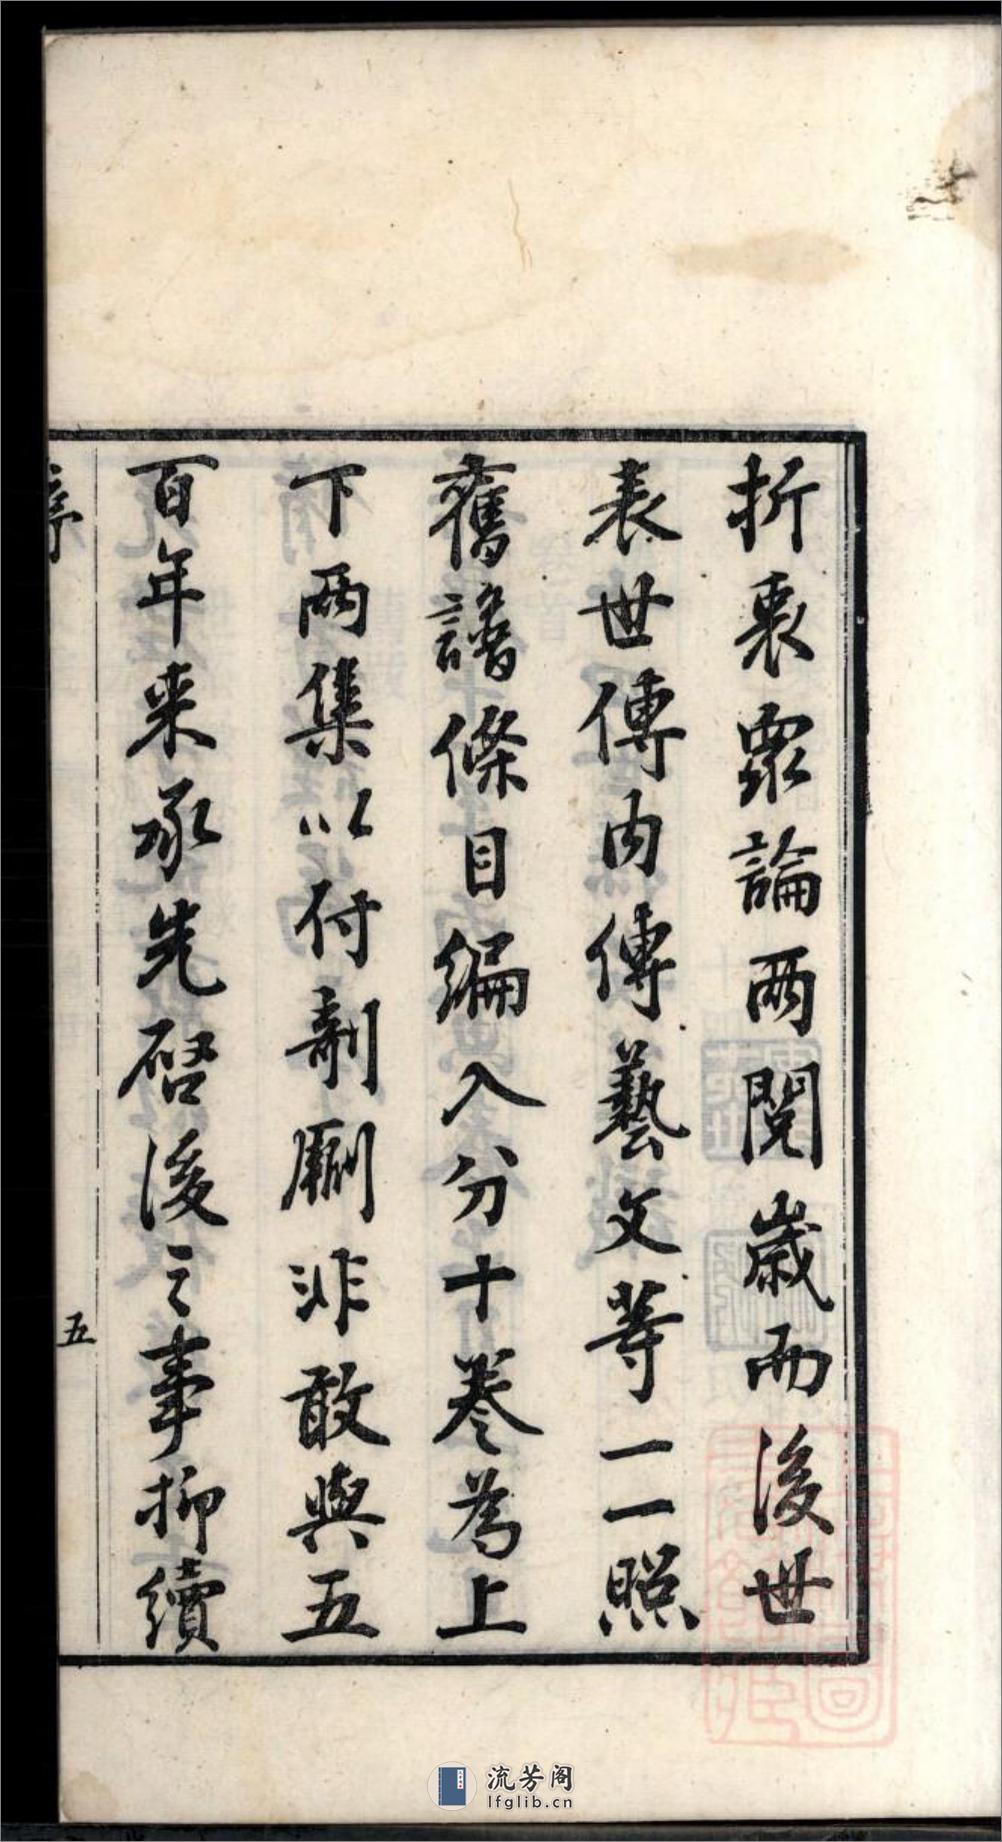 折衷眾論兩閱歲而後世
表世傳内傳藝文等一一照
舊譜條目編入分十卷為上
下兩集以付剞劂非敢與五
百年来承先啓後之事抑續
序
五
流芳阁
lfglib.cn